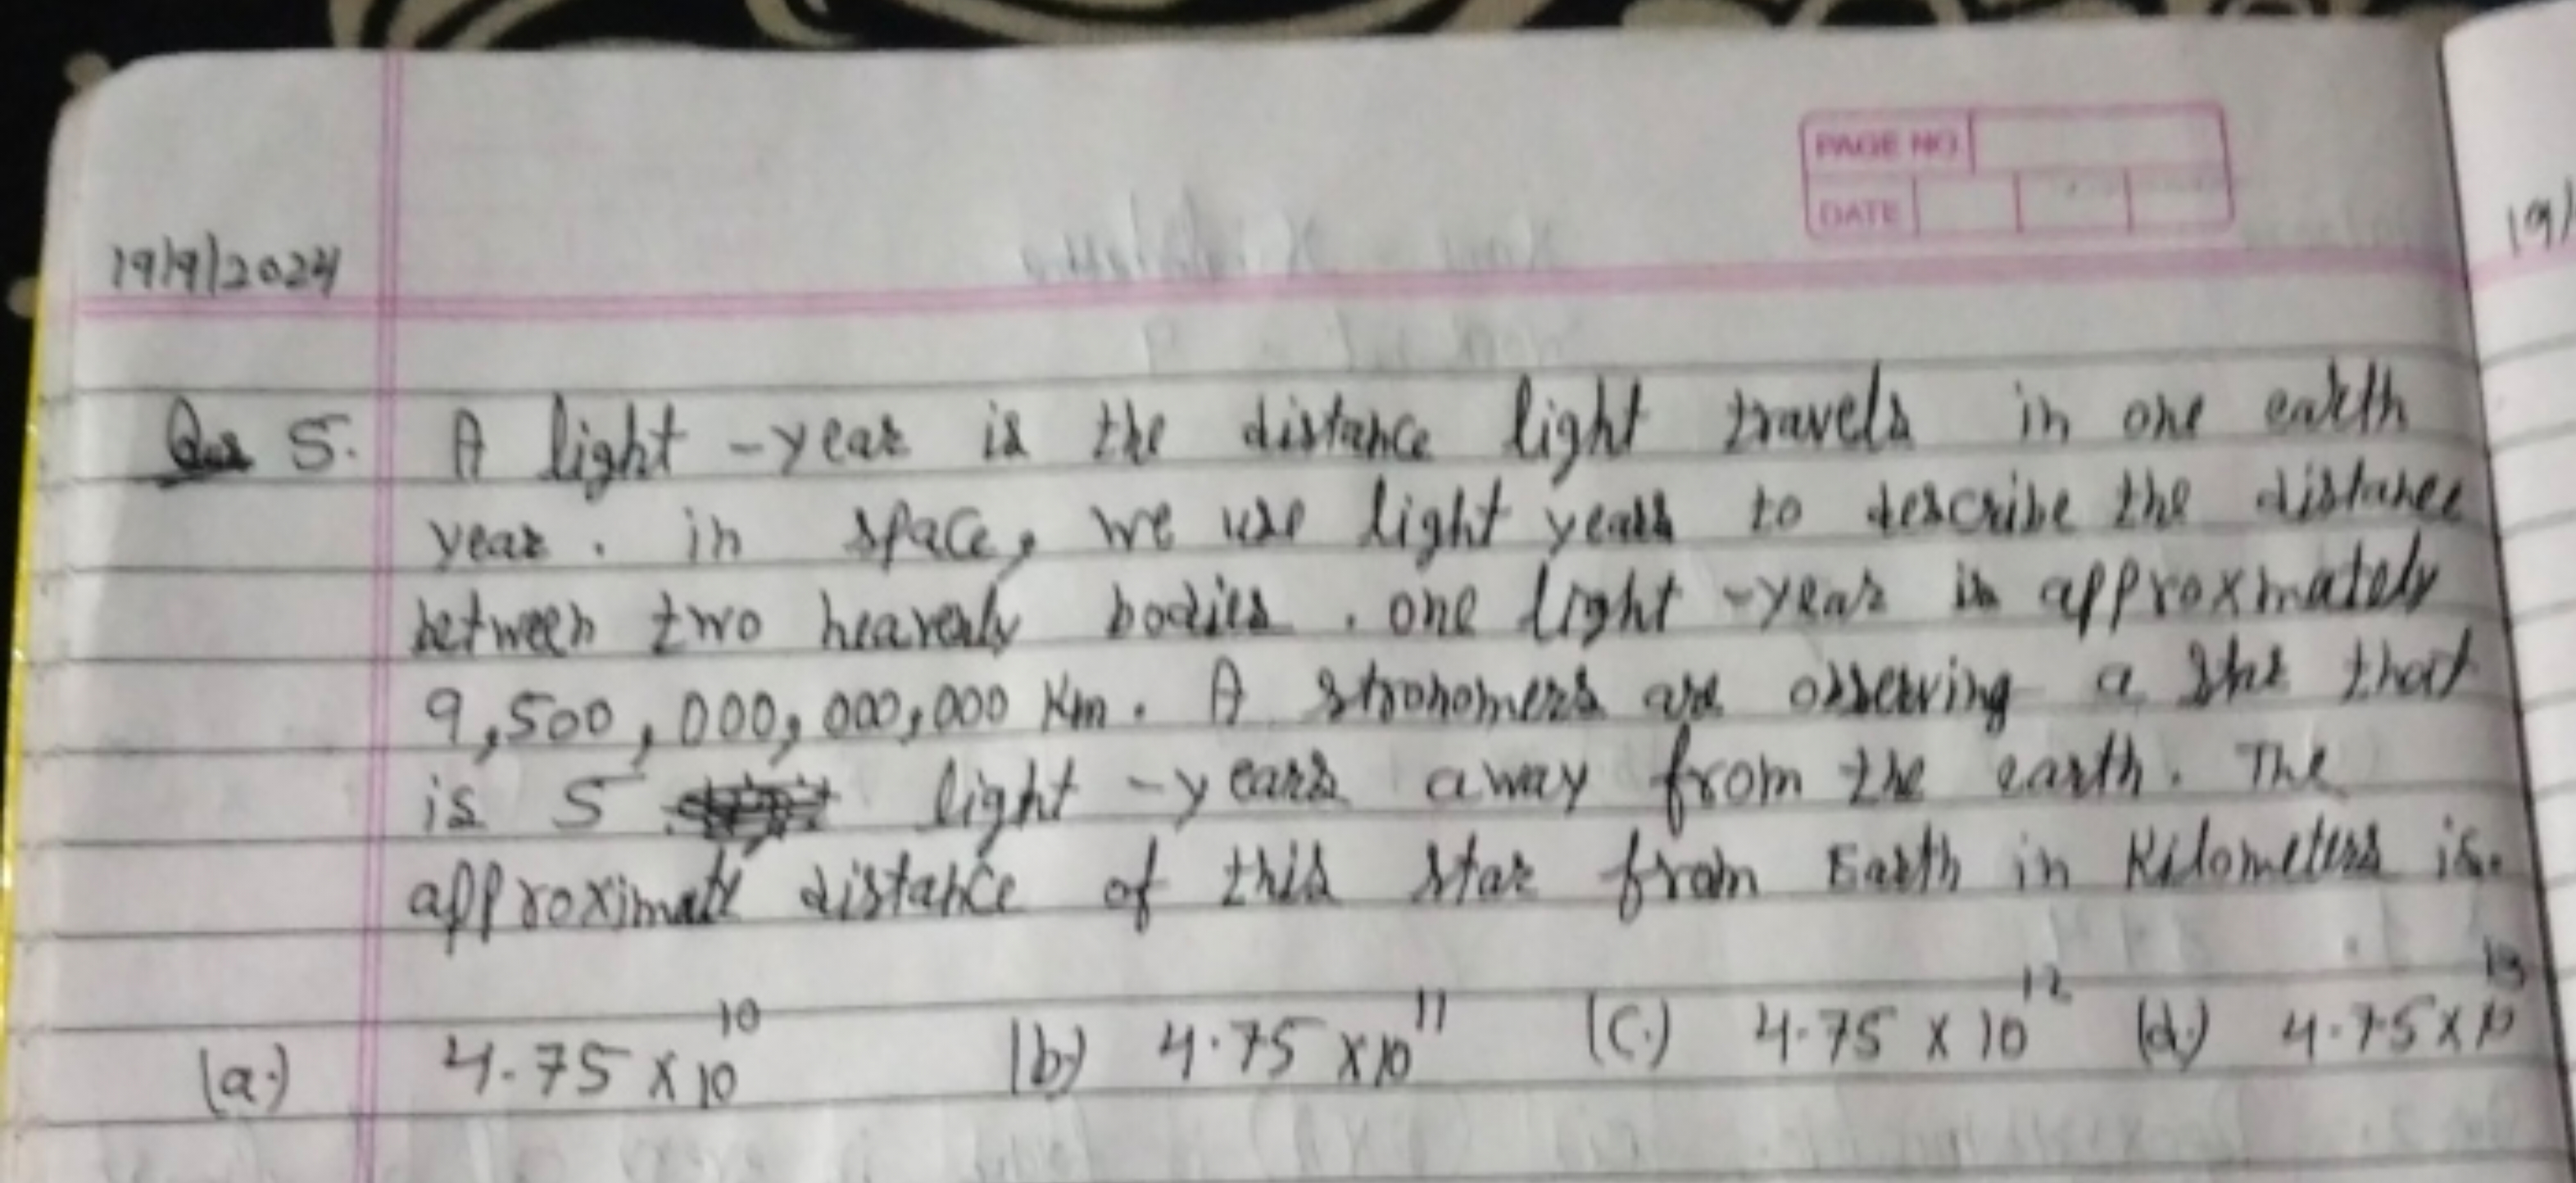 PAGE NO.
DATE
19/9/2024
19/
Qus 5. A light - year is the distance light travels in one earth
year . in space, we use light years to describe the distance
between two heavenly bodies . one light - year is approxmately
9,500,000,000,000 Km. A stronomers are observing a star that
is 5 light - years away from the earth. The
approximate distance of this star from Earth in Kilometers is.
(a.) 4.75 x 10^10 (b) 4.75 x 10^11 (C.) 4.75 x 10^12 (d.) 4.75 x 10^13